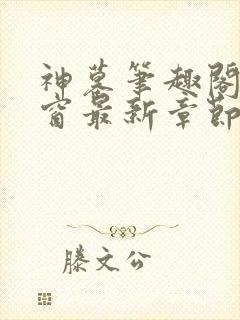 神墓笔趣阁
窗最新章节
滕文公